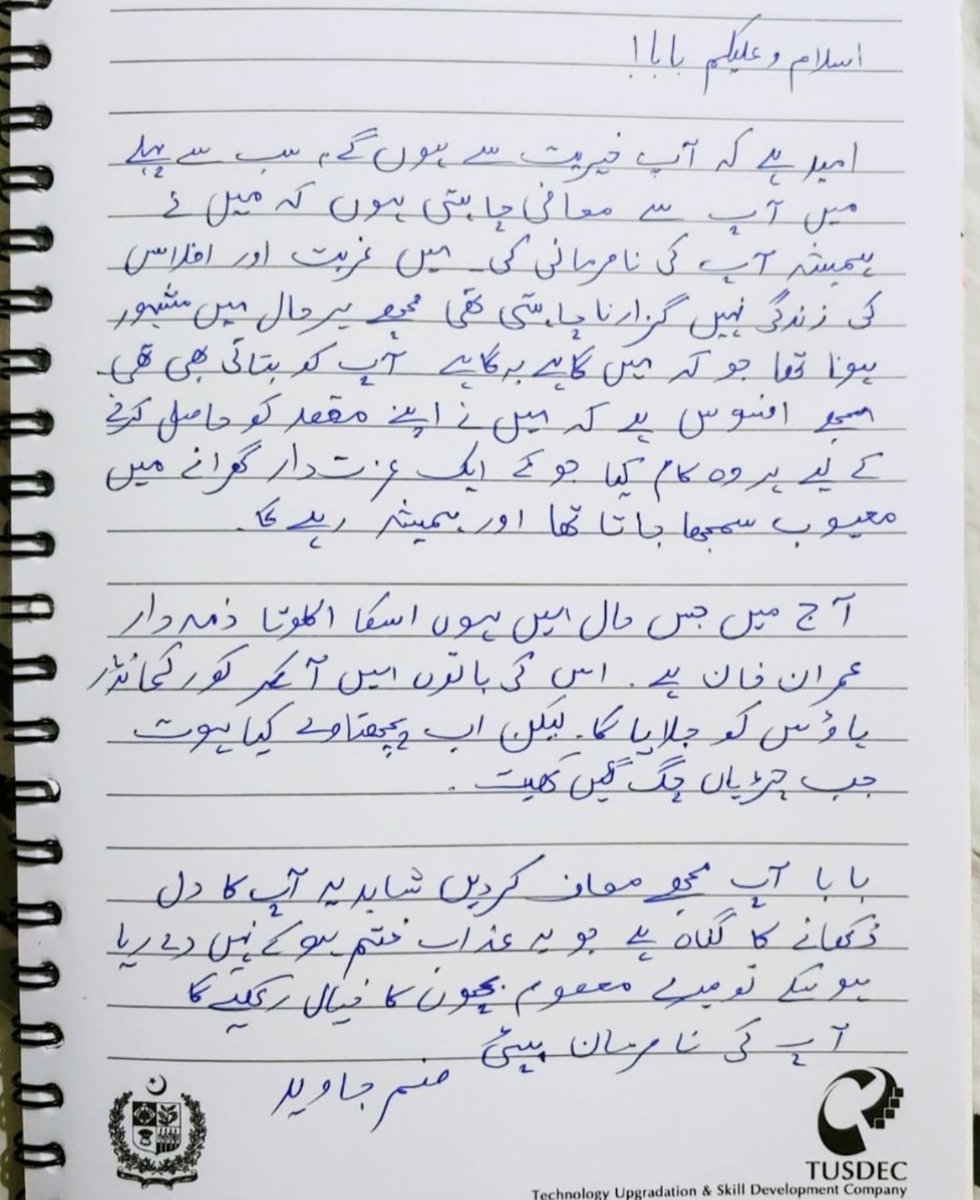 اسلام و علیکم بابا!
امید ہے کہ آپ خیریت سے ہوں گے، سب سے پہلے
میں آپ سے معافی چاہتی ہوں کہ میں نے
ہمیشہ آپ کی نافرمانی کی۔ میں غربت اور افلاس
کی زندگی نہیں گزارنا چاہتی تھی مجھے ہر حال میں مشہور
ہونا تھا جو کہ میں گاہے بہ گاہے آپ کو بتاتی بھی تھی۔
مجھے افسوس ہے کہ میں نے اپنے مقصد کو حاصل کرنے
کے لیے ہر وہ کام کیا جو کے ایک عزت دار گھرانے میں
معیوب سمجھا جاتا تھا اور ہمیشہ رہے گا۔
آج میں جس حال میں ہوں اسکا اکلوتا ذمہ دار
عمران خان ہے۔ اس کی باتوں میں آ کر کور کمانڈر
ہاؤس کو جلایا گیا۔ لیکن اب پچھتاوے کیا ہوت
جب چڑیاں چگ گئیں کھیت۔
بابا آپ مجھے معاف کردیں شاید یہ آپ کا دل
دُکھانے کا گناہ ہے جو یہ عذاب ختم ہو کے نہیں دے رہا
ہو سکے تو میرے معصوم بچوں کا خیال رکھیے گا
آپ کی نافرمان بیٹی
صنم جاوید
TUSDEC
Technology Upgradation & Skill Development Company